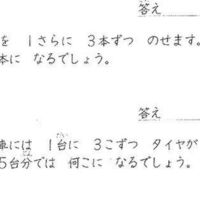 答え
を 1さらに 3本ずつ のせます。
本に なるでしょう。
答え
車には 1台に 3こずつ タイヤが
5台分では 何こに なるでしょう。